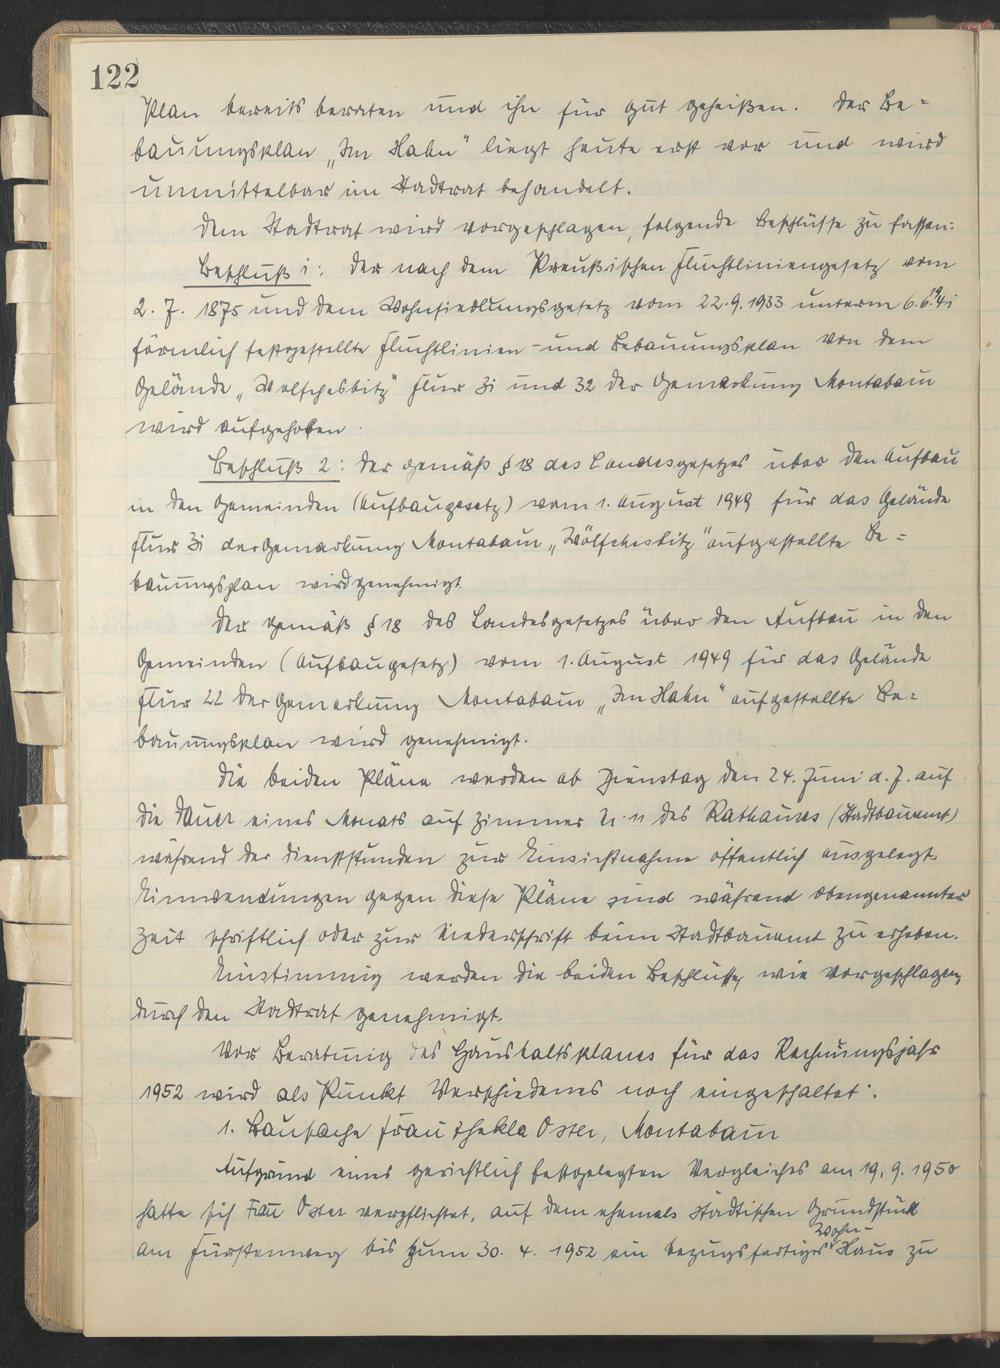 122
Plan bereits beraten und ihn für gut geheißen. Der Be=
bauungsplan „Im Hahn" liegt heute erst vor und wird
unmittelbar im Stadtrat behandelt.
Dem Stadtrat wird vorgeschlagen, folgende Beschlüsse zu fassen:
Beschluß 1: Der nach dem Preußischen Fluchtliniengesetz vom
2. 7. 1875 und dem Wohnsiedlungsgesetz vom 22.9.1933 unterm 6.6.1941
förmlich festgestellte Fluchtlinien- und Bebauungsplan von dem
Gelände „Wölfchesbitz" Flur 31 und 32 der Gemarkung Montabaur
wird aufgehoben.
Beschluß 2: Der gemäß § 18 des Landesgesetzes über den Aufbau
in den Gemeinden (Aufbaugesetz) vom 1. August 1949 für das Gelände
Flur 31 der Gemarkung Montabaur „Wölfchesbitz" aufgestellte Be=
bauungsplan wird genehmigt.
Der gemäß § 18 des Landesgesetzes über den Aufbau in den
Gemeinden (Aufbaugesetz) vom 1. August 1949 für das Gelände
Flur 22 der Gemarkung Montabaur „Im Hahn" aufgestellte Be=
bauungsplan wird genehmigt.
Die beiden Pläne werden ab Dienstag den 24. Juni d. J. auf
die Dauer eines Monats auf Zimmer 11 des Rathauses (Stadtbauamt)
während der Dienststunden zur Einsichtnahme öffentlich ausgelegt.
Einwendungen gegen diese Pläne sind während obengenannter
Zeit schriftlich oder zur Niederschrift beim Stadtbauamt zu erheben.
Einstimmig werden die beiden Beschlüsse, wie vorgeschlagen,
durch den Stadtrat genehmigt.
Vor Beratung des Haushaltsplanes für das Rechnungsjahr
1952 wird als Punkt Verschiedenes noch eingeschaltet:
1. Bausache Frau Thekla Oster, Montabaur
Aufgrund eines gerichtlich festgelegten Vergleiches am 19. 9. 1950
hatte sich Frau Oster verpflichtet, auf dem ehemals städtischen Grundstück
am Fürstenweg bis zum 30. 4. 1952 ein bezugsfertiges Wohn-Haus zu